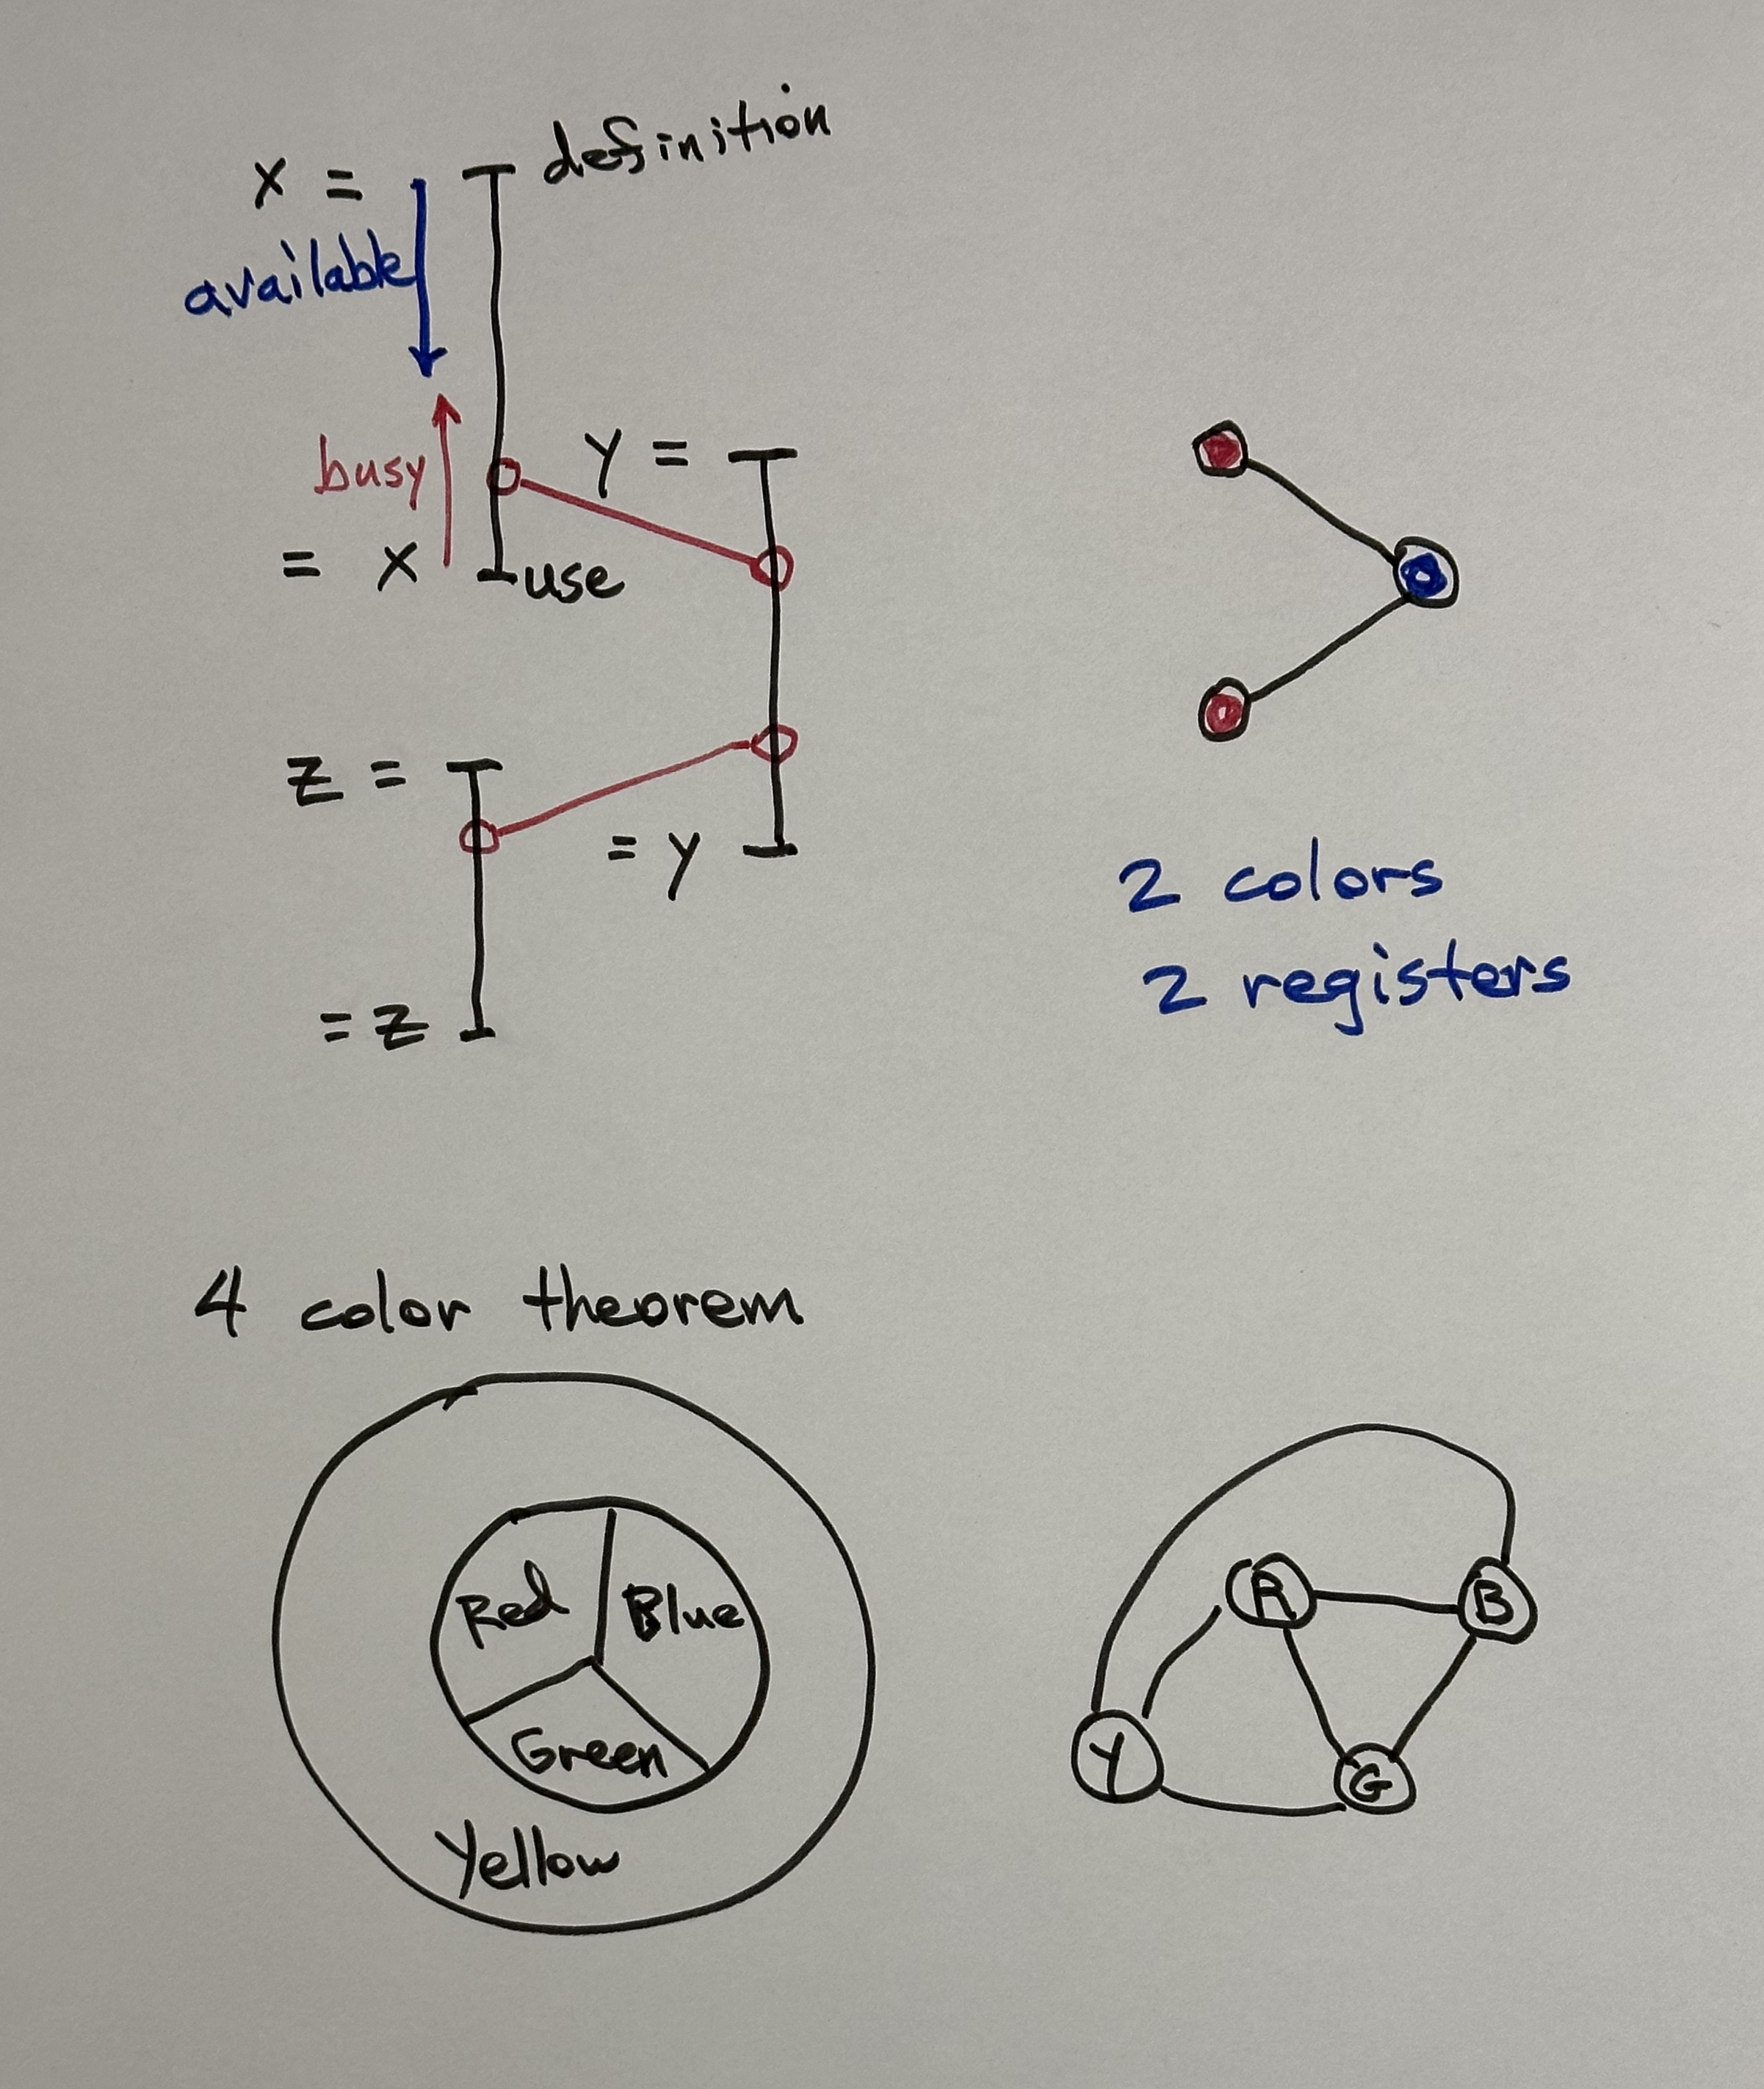 x = definition
available
busy
y =
= x use
z =
= y
= z
2 colors
2 registers
4 color theorem
Red Blue
Green
Yellow
R B
Y G